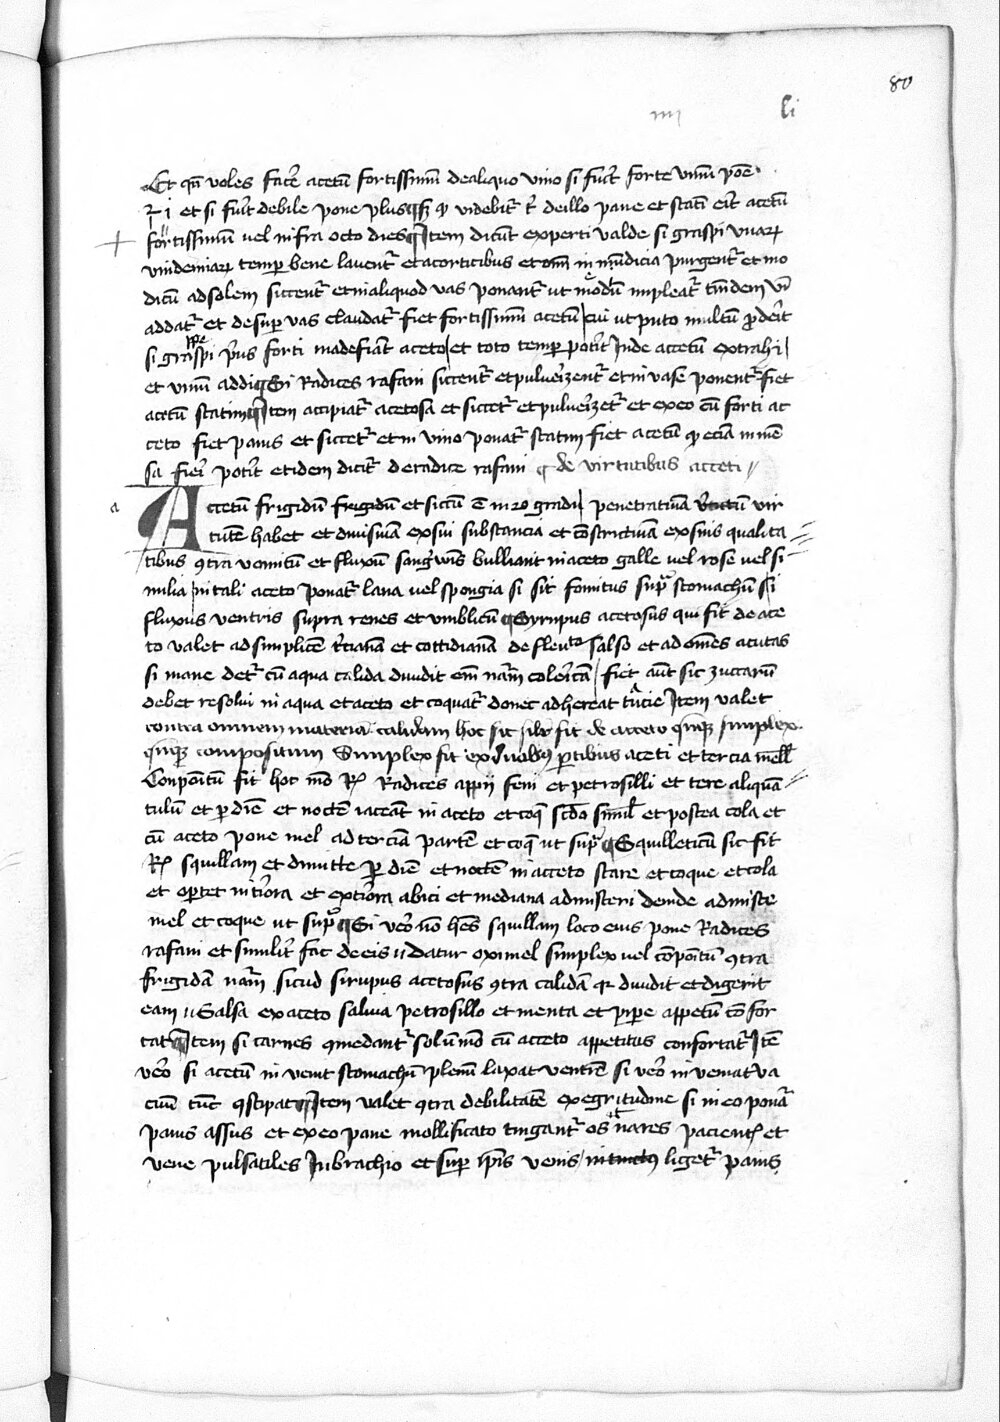 80
iiii li
Et qn̄ voles facẽ acetū fortissimū de aliquo vino si fuẽt forte vinū pōe
℥ i et si fuẽt debile pone plus ꝙ videbit᷑ t᷑ de illo pane et statī eit acetū
fortissimū vel infra octo dies ¶ Item dicūt experti valde si graspi vvaꝝ
vindemiaꝝ temꝑ bene lavent᷑ et a corticibus et om̄i in mūdicia purgent᷑ et mo
dicū ad solem siccent᷑ et in aliquod vas ponant᷑ ut modiū impleat᷑ tandem vī
addat᷑ et desuꝑ vas claudat᷑ fiet fortissimū acetū cui ut puto multū ꝓdeīt
si graspi p̄us forti madefiant aceto et toto temꝑ poteīt inde accetū extrahi
et vinū addi ¶ Si Radices rafani siccent᷑ et pulverizent᷑ et in vase ponent᷑ fiet
acetū statim ¶ Item accipiat᷑ acetosa et siccet᷑ et pulverizet᷑ et ex eo cū forti ac
ceto fiet panis et siccet᷑ et in vino ponat᷑ statim fiet acetū ꝙ eciā in mē
sa fieī poteīt et idem dicit᷑ de radice rafani ¶ de virtutibus acceti //
a Accetum frigidū frigidū et siccū ē in 2o gradu penetrativā vir
tutē habet et divisivā ex sui substancia et cōstrictivā ex suis qualita
tibus ꝯtra vomitū et fluxū sang᷑wīs bulliant in aceto galle vel rose vel si
milia in tali aceto ponat᷑ lana vel spongia si sit fomitus supᷓ stomachū si
fluxus ventris supra renes et vmblicū ¶ Syrupus acetosus qui fit de ace
to valet ad simplicē t̄cianā et cottidianā de fleu᷑te salso et ad om̄es acutas
si mane det᷑ cū aqua calida dividit em̄ mām coleīcā fiet aūt sic zuccarū
debet resolui in aqua et aceto et coquat᷑ donec adhereat Item valet
contra omnem materiā calidam hoc sic fit de acceto qn̄qꝫ simplex
qn̄qꝫ compositum Simplex fit ex duabꝰ ꝑtibus aceti et tercia mell᷑
Conpoītū fit hoc mō Rͤ Radices appij feni et petrosilli et tere aliquā
tulū et ꝑ diē et noctē iaceāt in aceto et coqͣ scd᷑o simil᷑ et postea cola et
cū aceto pone mel ad terciā partē et coqͣ ut supᷓ ¶ Squilleticū sic fit
Rͤ squillam et dimitte ꝑ diē et noctē in acceto stare et coque et cola
et oportet int̄iora et ext̄iora abici et mediana admisceri deinde admisce
mel et coque ut supᷓ ¶ Si vēo nō hēs squillam loco eius pone Radices
rafani et similit̄ fac de eis // Datur oximel simplex vel cōpoītū ꝯtra
frigidā mām sicud sirupus acetosus ꝯtra calidā qꝛ dividit et digerit
eam // Salsa ex aceto salvia petrosillo et menta et pip̄e appetitū cō for
tat ¶ Item si carnes ꝯmedant᷑ solūmō cū acceto appetitus confortat᷑ Itē
vēo si acetū in venit stomachū plenū laxat ventrē si vēo in veniat va
cuū tūc ꝯstipat ¶ Item valet ꝯtra debilitatē ex egritudine si in eo ponat᷑
panis assus et ex eo pane mollificato tingant᷑ os et nares pacient᷑ et
vene pulsatiles in brachio et suꝑ ip̄is venis liget᷑ panis